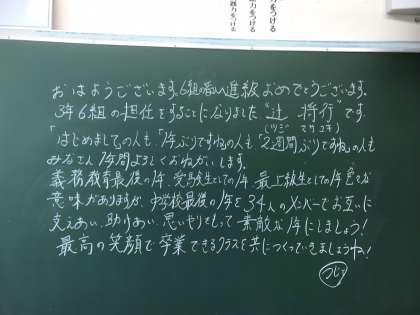 力をつける
践力をつける
おはようございます。6組の皆さん進級おめでとうございます。
3年6組の担任をすることになりました "辻 将行" です。
(ツジ マサユキ)
「はじめまして」の人も、「1年ぶりですね」の人も「2週間ぶりですね」の人も
みなさん1年間よろしくおねがいします。
義務教育最後の1年、受験生としての1年、最上級生としての1年 色々な
意味がありますが、中学校最後の1年を34人のメンバーでお互いに
支えあい、助けあい、思いやりをもって素敵な1年にしましょう!
最高の笑顔で卒業できるクラスを共につくっていきましょうね!
つじ